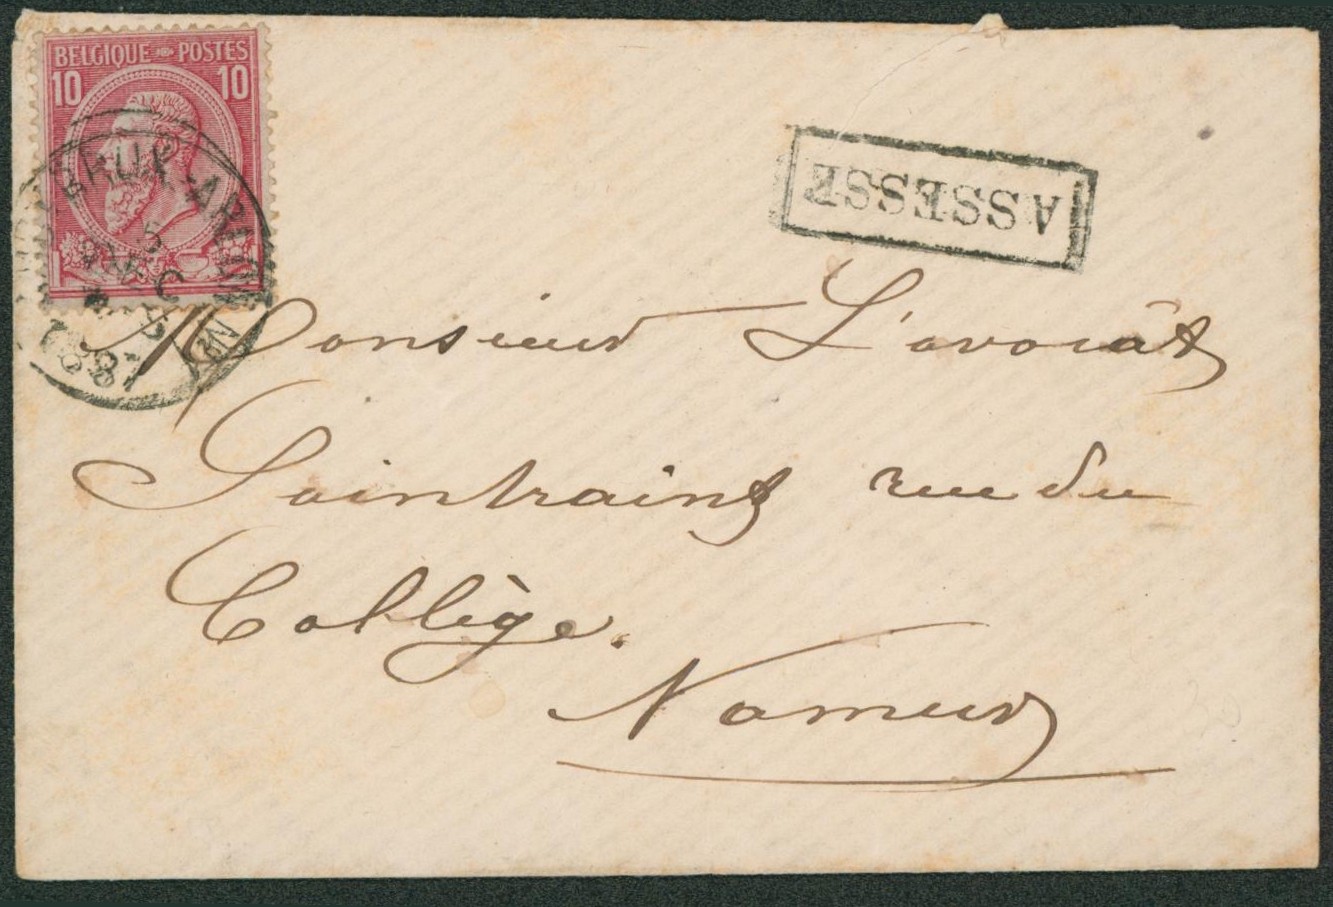 BELGIQUE POSTES
10 10
BRUX-ARLON
5
DEC
1887
ASSESSE
Monsieur L'avocat
Saintraint rue du
Collège.
Namur